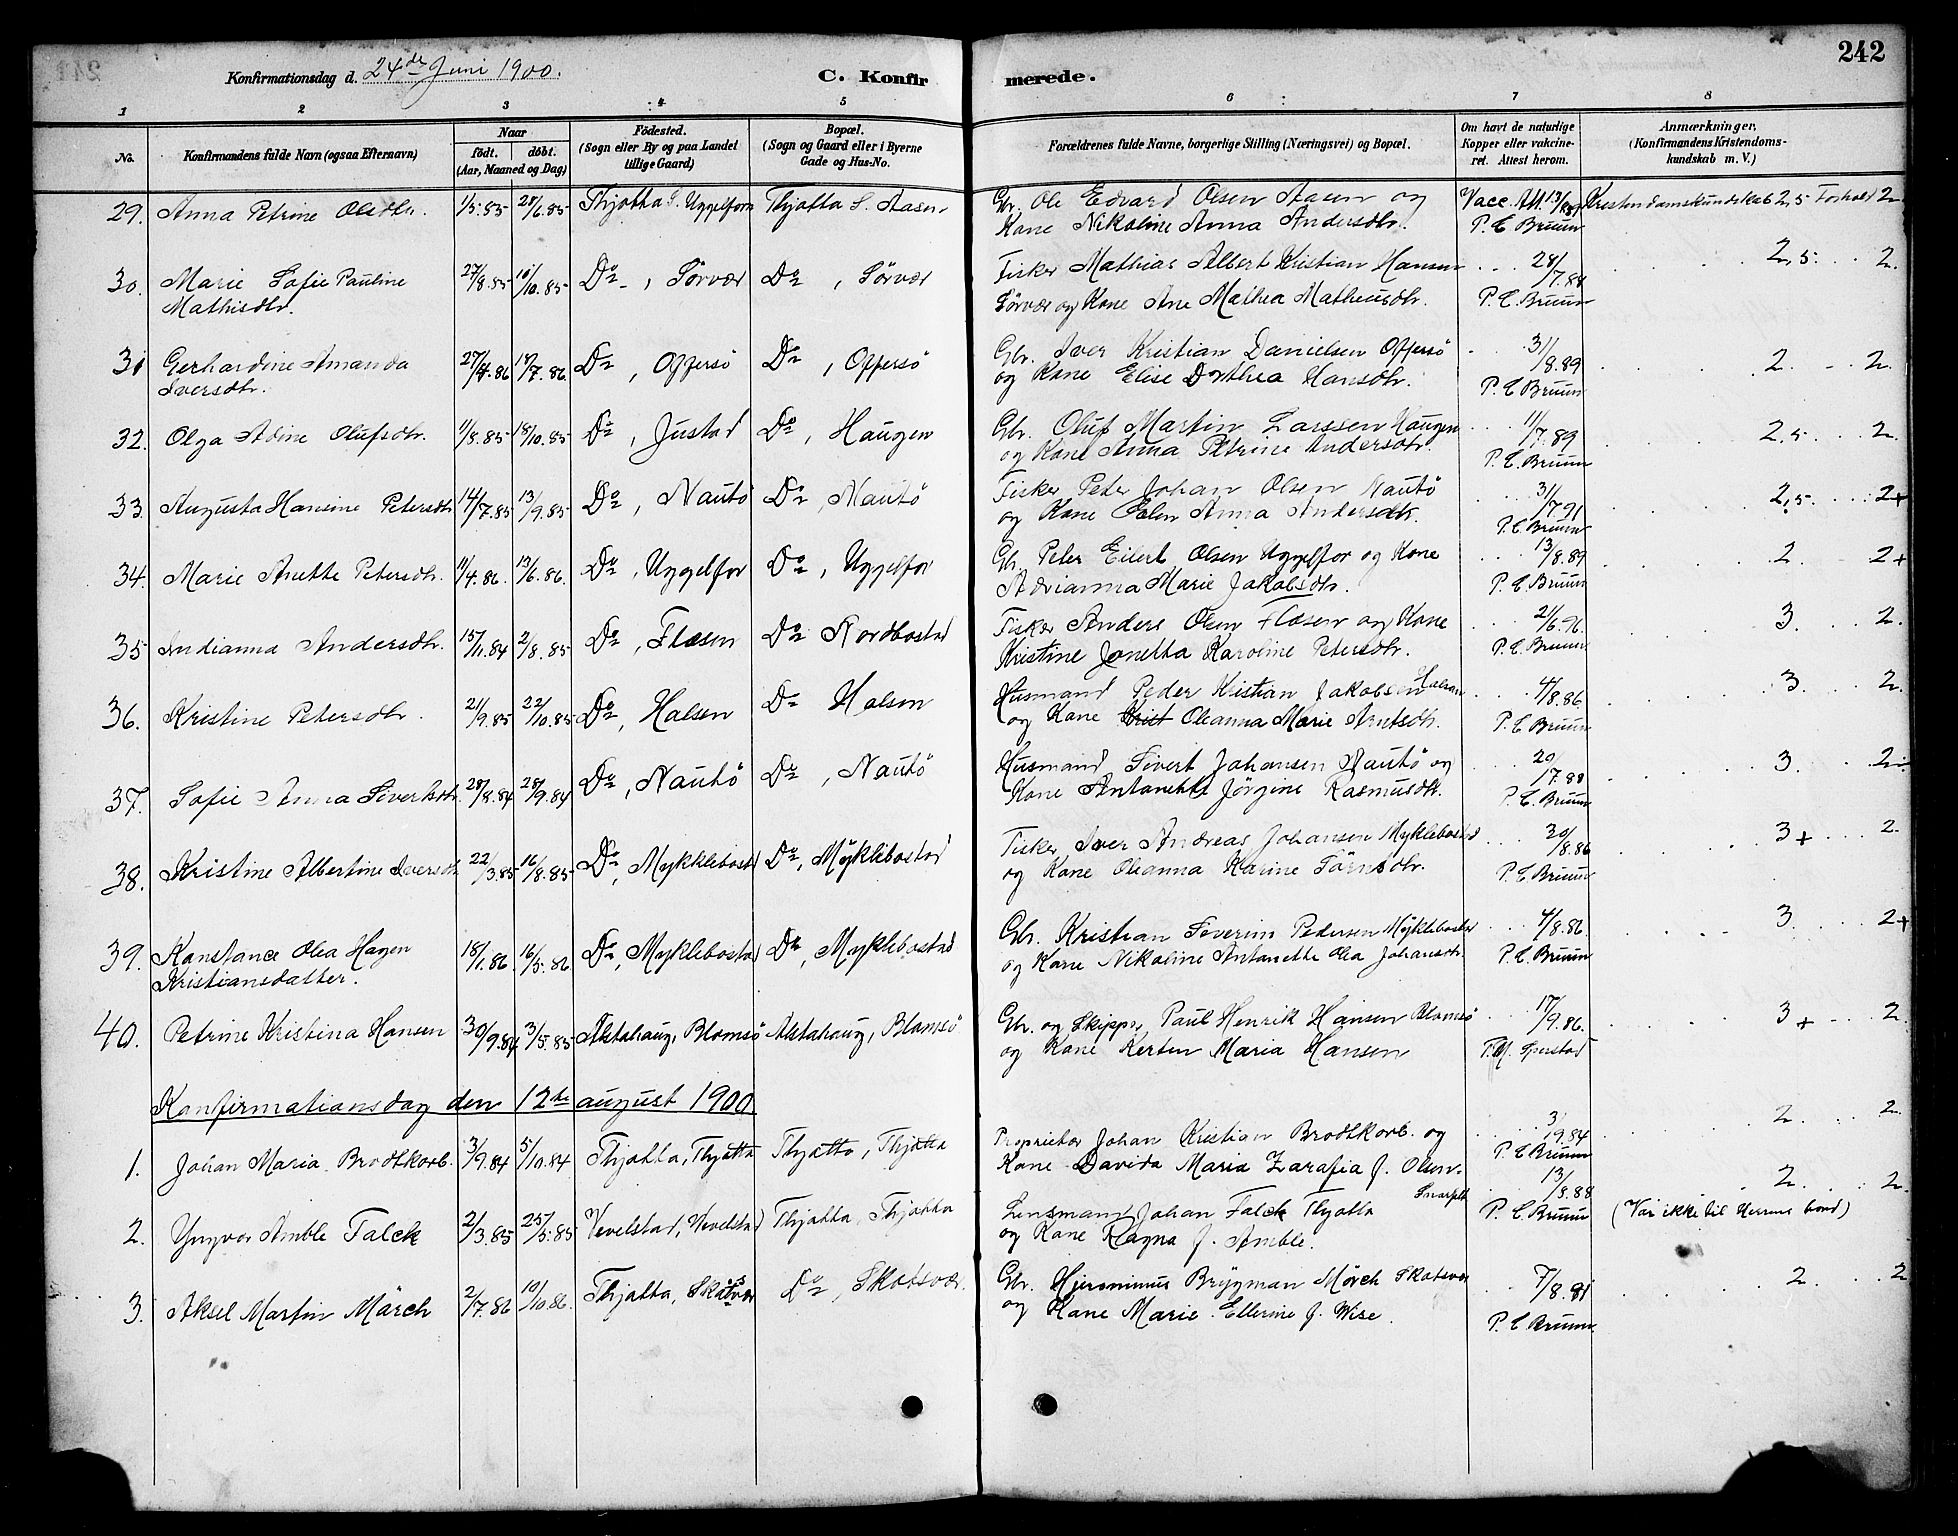 242
Konfirmationsdag d. 24de Juni 1900.
C. Konfirmerede.
1 2 3 4 5 6 7 8
No. Konfirmandens fulde Navn (ogsaa Efternavn) Naar født. døbt. (Aar, Maaned og Dag) Fødested. (Sogn eller By og paa Landet tillige Gaard) Bopæl. (Sogn og Gaard eller i Byerne Gade og Hus-No. Forældrenes fulde Navne, borgerlige Stilling (Næringsvei) og Bopæl. Om havt de naturlige Kopper eller vakcineret. Attest herom. Anmærkninger. (Konfirmandens Kristendomskundskab m. V.)
29. Anna Petrine Olsdtr. 1/5.85 28/6.85 Thjøtta S. Uggelforn Thjøtta S. Aasen Gbr. Ole Edvard Olsen Aasen og Vacc. Att. Kristendomskundskab 2,5 Forhold 2.
Kone Nikoline Anna Andersdtr. P. C Bruun
30. Marie Sofie Pauline 27/8.85 /10.85 Do, Sörvær Do, Sörvær Fisker Mathias Albert Kristian Hansen 28/7.88 2,5. 2.
Mathisdtr. Sörvær og Kone Ane Mathea Matheusdtr. P. C. Bruun
31 Gerhardine Amanda 27/4.86 18/7.86. Do, Offersö Do, Offersö Gbr. Iver Kristian Danielsen Offersö 31/8.89 2. 2.
Iversdtr. og Kone Elise Dorthea Hansdtr. P. C Bruun
32. Olga Adine Olufsdtr. 11/8.85 18/10.85 Do, Justad Do, Haugen Gbr. Oluf Martin Larssen Haugen 11/7.89 2,5. 2.
og Kone Anna Petrine Andersdtr. P. C. Bruun
33. Augusta Hansine Petersdtr 14/7.85 13/9.85 Do, Nautö Do, Nautö Fisker Peter Johan Olsen Nautö 31/7.91 2,5. 2+
og Kone Elen Anna Andersdtr. P. C. Bruun
34. Marie Anette Petersdtr. 11/4.86. 13/6.86. Do, Uggelfor Do, Uggelfor Gbr. Peter Eilert Olsen Uggelfor og Kone 13/8.89 2. 2+
Adrianna Marie Jakobsdtr. P. C. Bruun
35 Indianna Andersdtr. 15/11.84 2/8.85 Do, Flæsen Do Nordbostad Fisker Anders Olsen Flæsen og Kone 21/6.96 3. 2.
Kristine Jonetta Karoline Petersdtr. P. C. Bruun
36. Kristine Petersdtr. 21/9.85 22/10.85 Do, Halsen Do Halsen Husmand Peder Kristian Jakobsen Halsen 4/8.86 3. 2.
og Kone Krist Oleanna Marie Arntsdtr. P. C Bruun
37. Sofie Anna Sivertsdtr. 28/8.84 28/9.84 Do, Nautö Do, Nautö Husmand Sivert Johansen Nautö og 20/7.88 3. 2.
Kone Antonette Jörgine Rasmusdtr. P. C. Bruun
38. Kristine Albertine Iversdtr 22/3.85 16/8.85 Do, Mykklebostad Do, Myklebostad Fisker Iver Andreas Johansen Myklebostad 30/8.86 3+ 2.
og Kone Oleanna Karine Törrisdtr. P. C Bruun
39. Konstance Olea Hagen 18/1.86. 16/5.86 Do, Myklebostad Do, Myklebostad Gbr. Kristian Severin Pedersen Myklebostad 4/8.86. 3. 2+
Kristiansdatter. og Kone Nikoline Antonette Olea Johansdtr. P. C. Bruun
40. Petrine Kristina Hansen 30/9.84 3/5.85 Alstahaug, Blomsö Alstahaug, Blomsö Gbr. og Skipper Paul Henrik Hansen Blomsö 17/9.86. 3+ 2.
og Kone Kersten Maria Hansen Sperstad
Konfirmationsdag den 12te august 1900
1. Johan Maria Brodtkorb. 3/9.84 5/10.84 Thjøtta, Thjøtta Thjøtta, Thjøtta Proprietær Johan Kristian Brodtkorb. og 3/9.84 2. 2.
Kone Davida Maria Zarafia f. Olsen. P. C Bruun
2. Yngvar Amble Falck 2/3.85 25/5.85 Vevelstad, Vevelstad Thjøtta, Thjøtta Lensmand Johan Falck Thjøtta 13/8.88 2. 2.
og Kone Ragna f. Amble. P. C. Bruun (Var ikke til Herrens bord)
3. Aksel Martin Mörch 2/7.86 10/10.86. Thjøtta, Skotsvær Do, Skotsvær. Gbr. Hjeronimus Brygman Mörch Skotsvær 7/8.91 2. 2
og Kone Marie Ellerine f. Wise. P. C Bruun